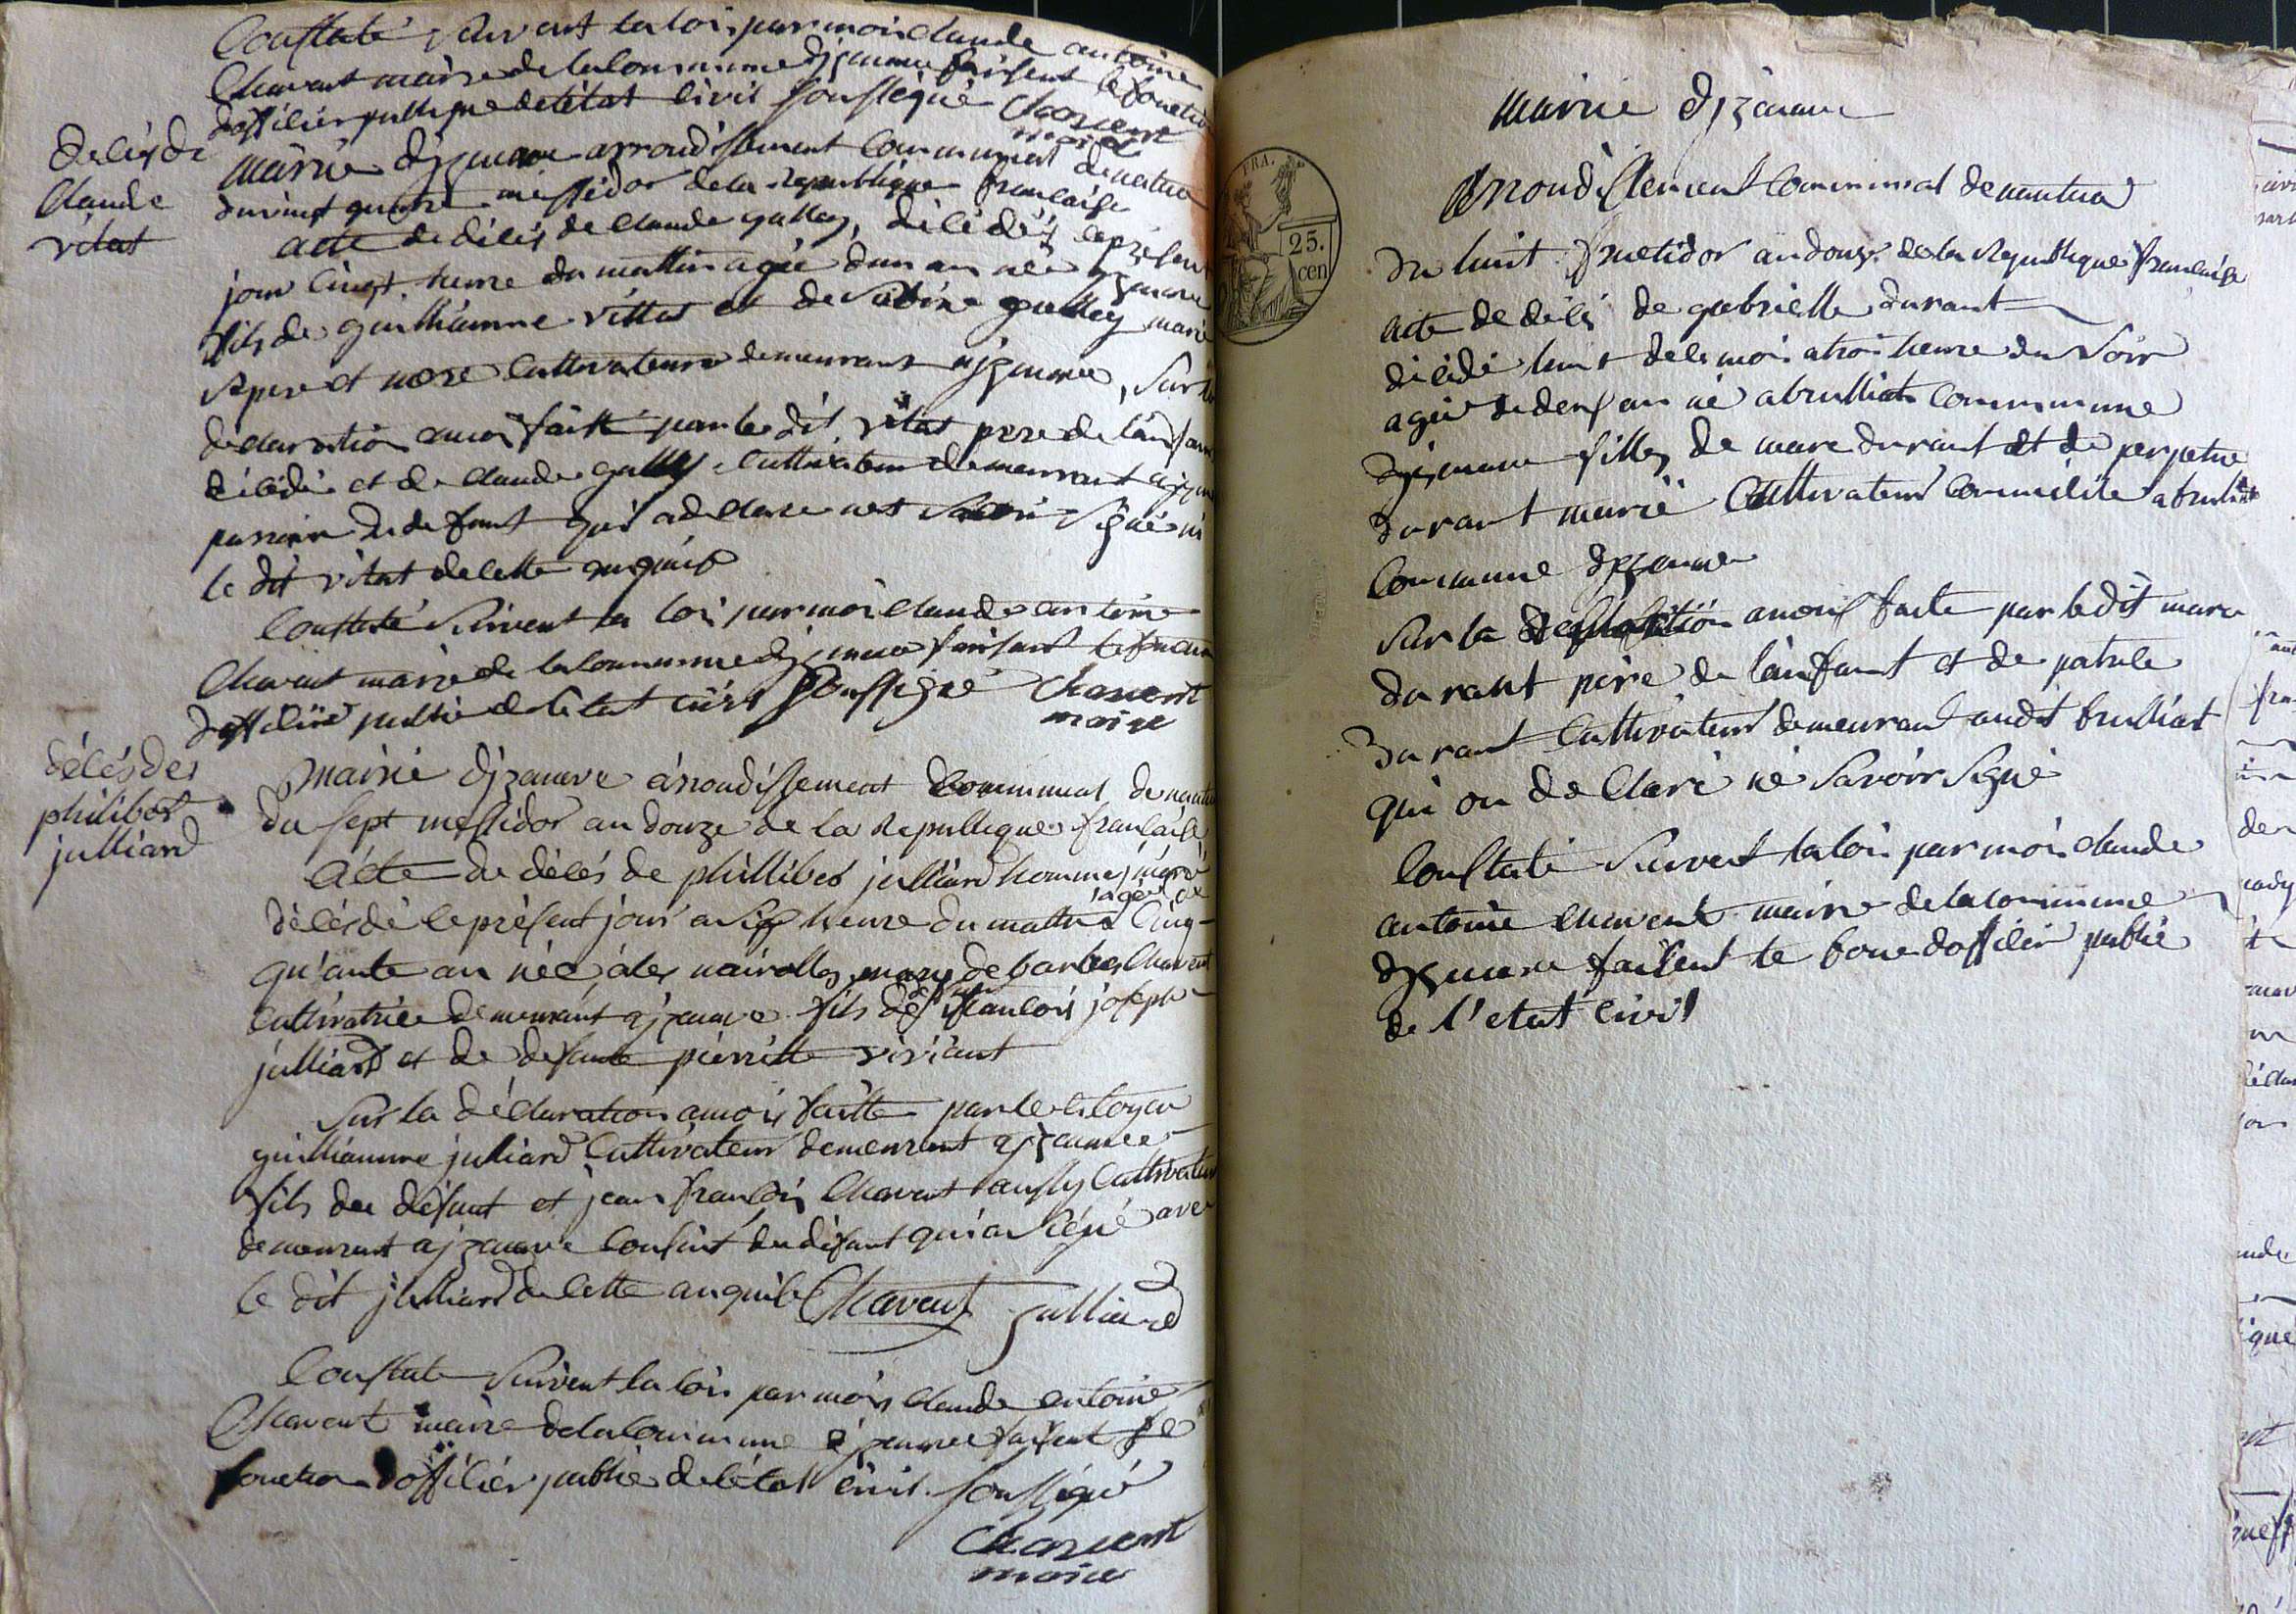 Constaté suivent la loi par moi claude antoine
Chavent maire de la commune djzenave faisent le fonction
dofficier publique de letat civil soussegné Chavent
maire
decés de
Claude
vitat
Mairie djzenave arrondissement communal de nantua
du vingt quatre messidor de la republique francaise
acte de décés de claude galley, décédés le présent
jour cinqt heure du mattin agée dun an née
fils de guilliaume vittat et de galley marié
pere et mere cultivateur demeurant ajzenave, sur la
declaration amoi faitte par le dit vitat pere de lanfant
décédé et de claude galley cultivateur demeurant ajzenave
du defunt qui a declare net savoir signé ni
le dit vitat de cette
Constaté suivent la loi par moi claude antoine
Chavent maire de la commune djzenave faisant le fonction
dofficier public de létat civil soussegné Chavent
maire
décés de
philibert
julliard
Mairie djzenave arrondissement communal de nantua
du sept messidor an douze de la republique francaise
acte de décés de phillibert julliard homme marié
décésdé le présent jour a six heure du mattin agée de Cinq-
qu'ante an née a les nairolles mary de barbes Chavent
cultivatrice demeurant ajzenave fils de francois joseph
julliard et de defunte pierrette viviant
Sur la déclaration amois faitte par le citoyen
guilliaume julliard cultivateur demeurant ajzenave
fils du défunt et jean francois Chavent aussy cultivateur
demeurant ajzenave cousint du défunt qui a signé avec
le dit julliard de cette Chavent julliard
Constate suivent la loi par mois claude antoine
Chavent maire de la commune djzenave faisent le
fonction dofficier public de létat civil soussigné
Chavent
maire
FRA.
25.
cen
Mairie djzenave
Arrondissement communal de nantua
Du huit fructidor an douze de la republique francaise
acte de décés de gabrielle durant
décédé huit de ce mois atroi heure du soir
agée de deux an né abrulliat commune
djzenave filles de marc durant et de perpetue
durant marié cultivateur abrulliat
commune djzenave
Sur la amois faite par le dit marc
durant père de lanfant et de
durant cultivateur demeurant audit brulliat
qui on declaré né savoir signé
Constaté suivent la loi par moi claude
antoine chavent maire de la commune
djzenave faisent le fonc dofficier public
de l'etat civil